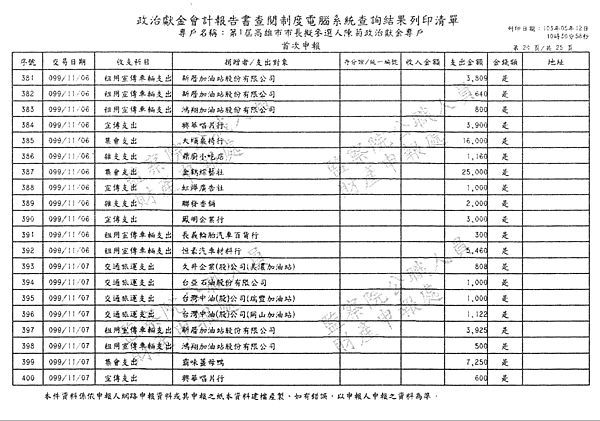 政治獻金會計報告書查閱制度電腦系統查詢結果列印清單
專戶名稱：第1屆高雄市市長擬參選人陳菊政治獻金專戶
首次申報
列印日期：103年05年12日
10時30分58秒
第20頁/共25頁
序號 交易日期 收支科目 捐贈者/支出對象 身分證/統一編號 收入金額 支出金額 金錢類
381 099/11/06 租用宣傳車輛支出 新厝加油站股份有限公司 3,809 是
382 099/11/06 租用宣傳車輛支出 新厝加油站股份有限公司 640 是
383 099/11/06 租用宣傳車輛支出 鴻翔加油站股份有限公司 800 是
384 099/11/06 宣傳支出 興華唱片行 3,900 是
385 099/11/06 集會支出 大順桌椅行 16,000 是
386 099/11/06 雜支支出 鼎廚小吃店 1,160 是
387 099/11/06 集會支出 金鶴綜藝社 25,000 是
388 099/11/06 宣傳支出 虹燁廣告社 1,000 是
389 099/11/06 雜支支出 聯發香舖 2,000 是
390 099/11/06 宣傳支出 鳳明企業行 3,000 是
391 099/11/06 租用宣傳車輛支出 長義輪胎汽車百貨行 300 是
392 099/11/06 租用宣傳車輛支出 恒豪汽車材料行 5,460 是
393 099/11/07 交通旅運支出 久井企業(股)公司(美濃加油站) 808 是
394 099/11/07 交通旅運支出 台亞石油股份有限公司 1,000 是
395 099/11/07 交通旅運支出 台灣中油(股)公司(瑞豐加油站) 1,000 是
396 099/11/07 交通旅運支出 台灣中油(股)公司(岡山加油站) 1,122 是
397 099/11/07 租用宣傳車輛支出 新厝加油站股份有限公司 3,925 是
398 099/11/07 租用宣傳車輛支出 鴻翔加油站股份有限公司 500 是
399 099/11/07 集會支出 霸味薑母鴨 7,250 是
400 099/11/07 宣傳支出 興華唱片行 600 是
監察院公職人員
財產申報處
監察院公職人員
財產申報處
監察院公職人員
財產申報處
監察院公職人員
財產申報處
本件資料係依申報人網路申報資料或其申報之紙本資料建檔產製，如有錯誤，以申報人申報之資料為準．